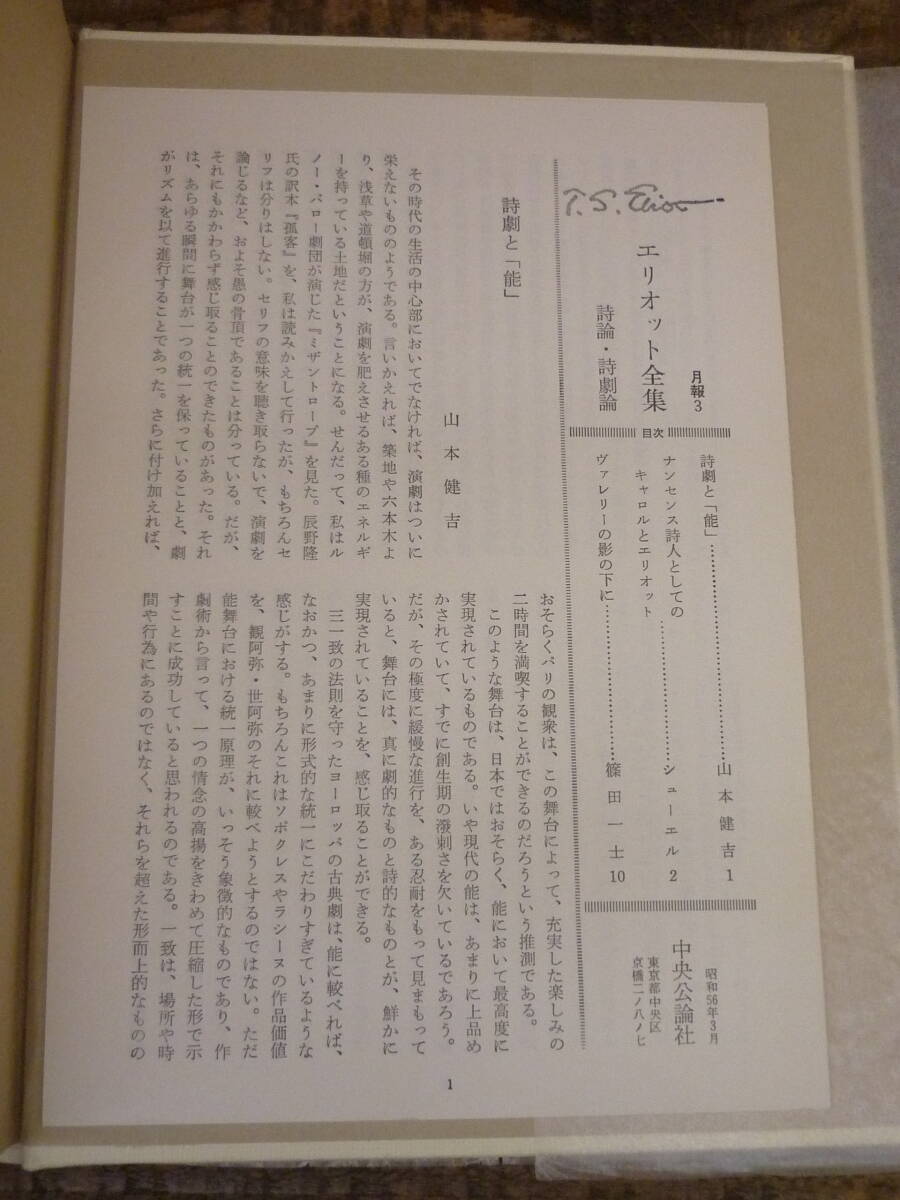 T. S. Eliot
エリオット全集
月報3
詩論・詩劇論
目次
詩劇と「能」……………………………山本健吉 1
ナンセンス詩人としての
キャロルとエリオット……………………シューエル 2
ヴァレリーの影の下に……………………篠田一士 10
昭和56年3月
中央公論社
東京都中央区
京橋二ノ八ノ七
詩劇と「能」
山本健吉
その時代の生活の中心部においてでなければ、演劇はついに
栄えないもののようである。言いかえれば、築地や六本木よ
り、浅草や道頓堀の方が、演劇を肥えさせるある種のエネルギ
ーを持っている土地だということになる。せんだって、私はル
ノー・バロー劇団が演じた『ミザントロープ』を見た。辰野隆
氏の訳本『孤客』を、私は読みかえして行ったが、もちろんセ
リフは分りはしない。セリフの意味を聴き取らないで、演劇を
論じるなど、およそ愚の骨頂であることは分っている。だが、
それにもかかわらず感じ取ることのできたものがあった。それ
は、あらゆる瞬間に舞台が一つの統一を保っていることと、劇
がリズムを以て進行することであった。さらに付け加えれば、
おそらくパリの観衆は、この舞台によって、充実した楽しみの
二時間を満喫することができるのだろうという推測である。
このような舞台は、日本ではおそらく、能において最高度に
実現されているものである。いや現代の能は、あまりに上品め
かされていて、すでに創生期の潑剌さを欠いているであろう。
だが、その極度に緩慢な進行を、ある忍耐をもって見まもって
いると、舞台には、真に劇的なものと詩的なものとが、鮮かに
実現されていることを、感じ取ることができる。
三一致の法則を守ったヨーロッパの古典劇は、能に較べれば、
なおかつ、あまりに形式的な統一にこだわりすぎているような
感じがする。もちろんこれはソポクレスやラシーヌの作品価値
を、観阿弥・世阿弥のそれに較べようとするのではない。ただ
能舞台における統一原理が、いっそう象徴的なものであり、作
劇術から言って、一つの情念の高揚をきわめて圧縮した形で示
すことに成功していると思われるのである。一致は、場所や時
間や行為にあるのではなく、それらを超えた形而上的なものの
1